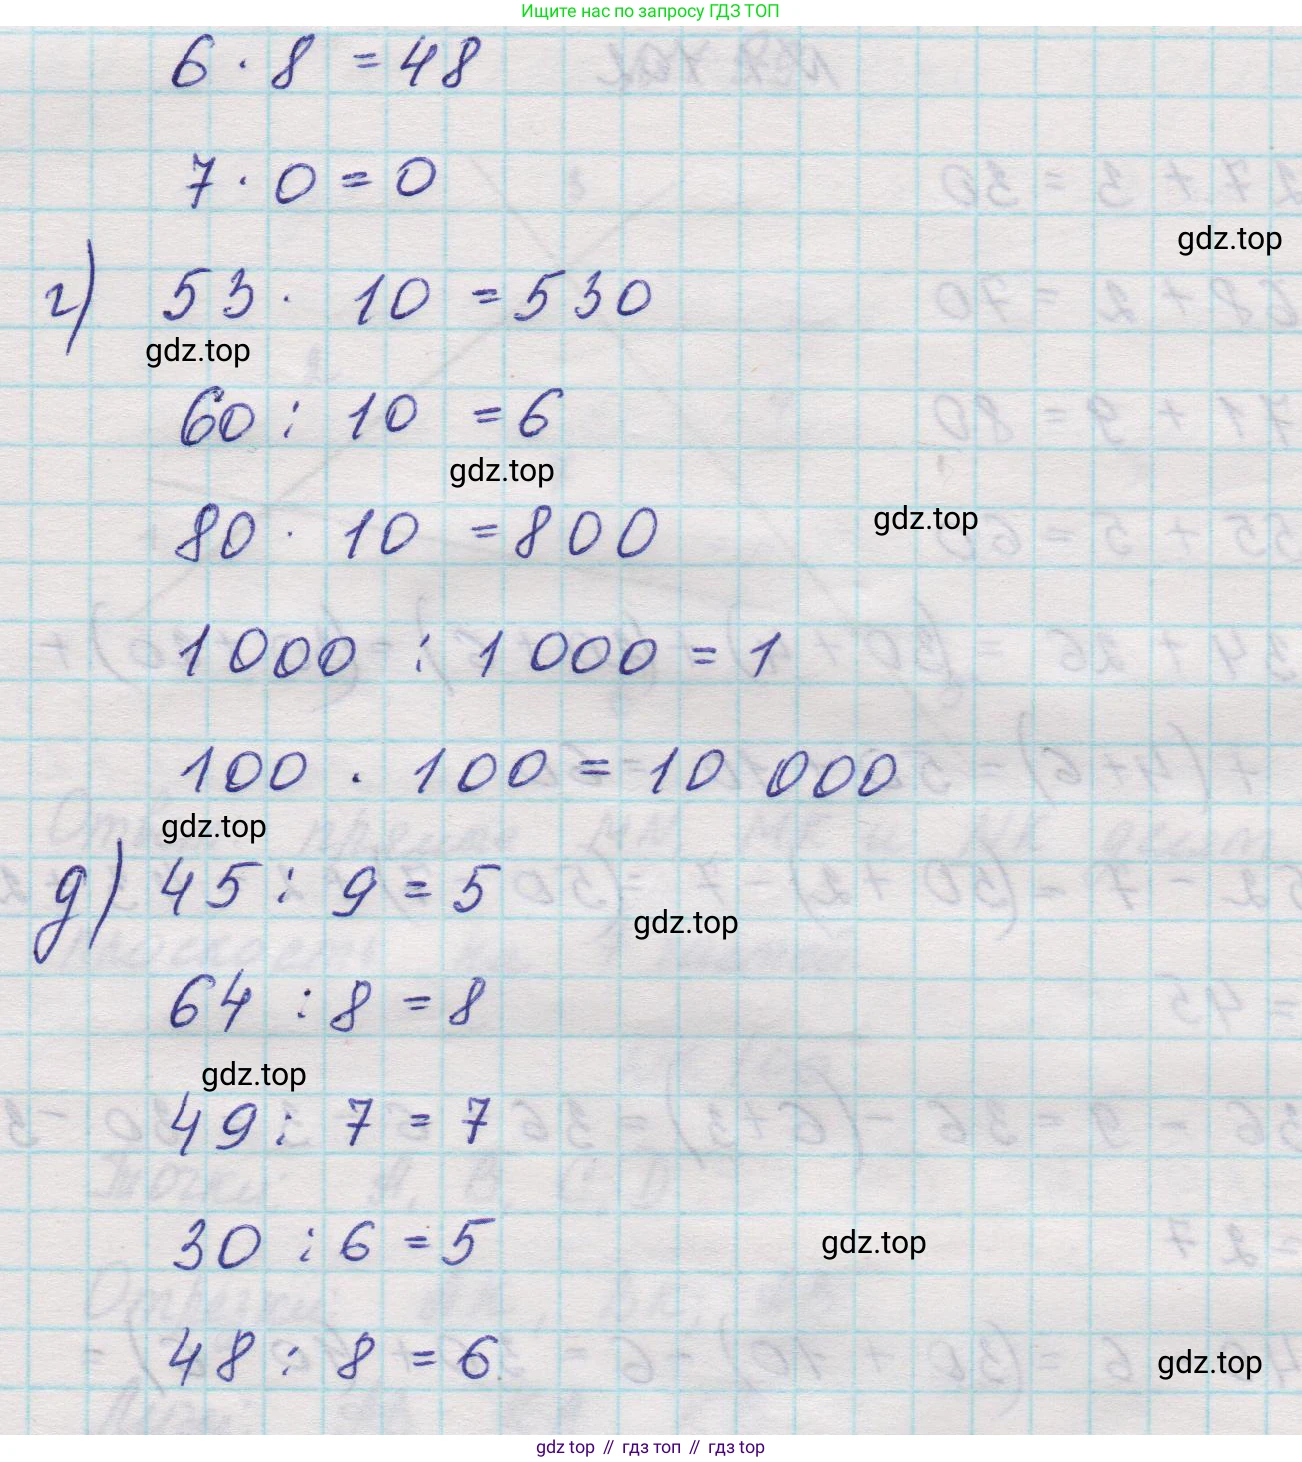 Ищите нас по запросу ГДЗ ТОП
6 · 8 = 48
7 · 0 = 0
gdz.top
г) 53 · 10 = 530
gdz.top
60 : 10 = 6
gdz.top
80 · 10 = 800
gdz.top
1000 : 1000 = 1
100 · 100 = 10 000
gdz.top
д) 45 : 9 = 5
gdz.top
64 : 8 = 8
gdz.top
49 : 7 = 7
30 : 6 = 5
gdz.top
48 : 8 = 6
gdz.top
gdz top // гдз топ // gdz top